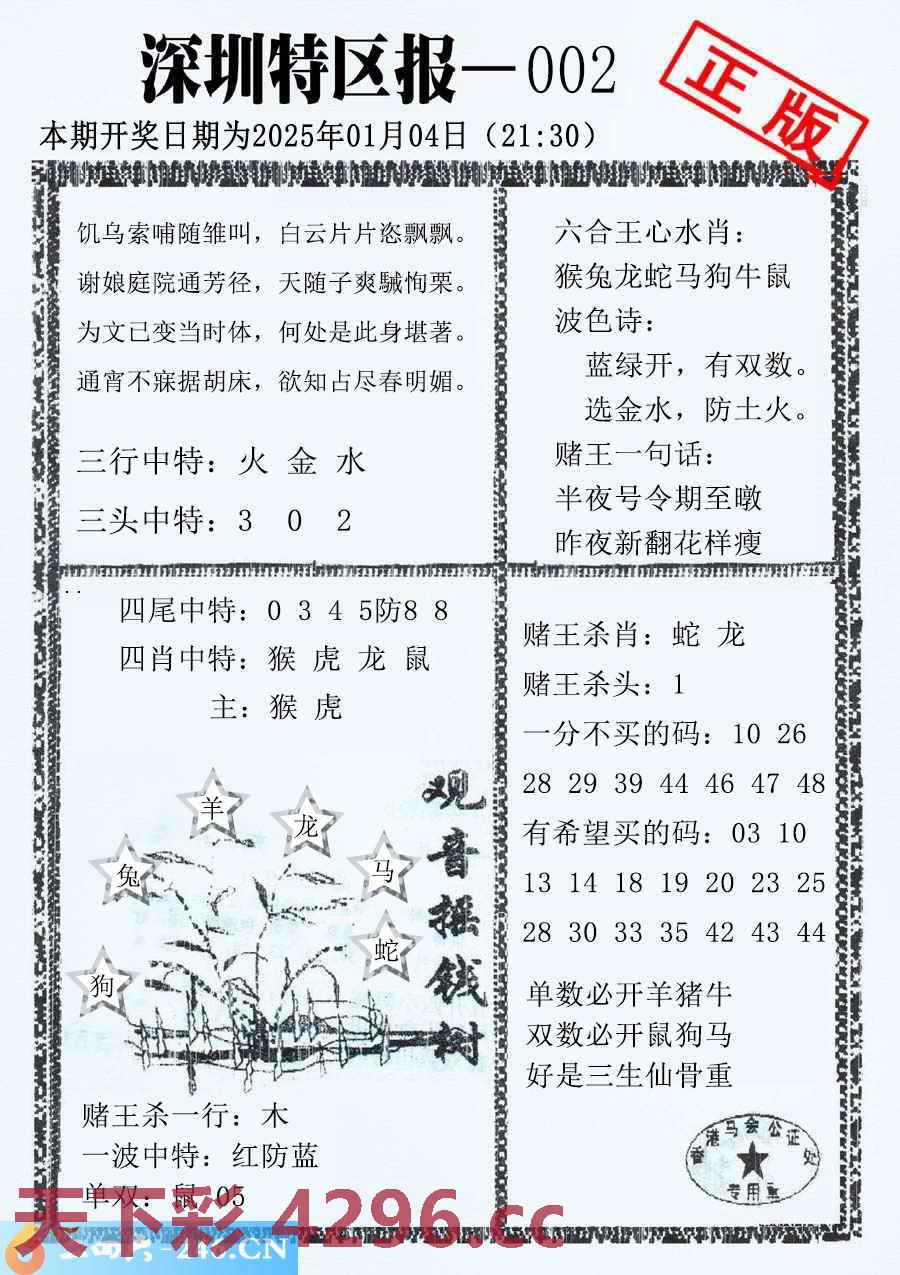 深圳特区报—002
正版
本期开奖日期为2025年01月04日（21:30）
饥乌索哺随雏叫，白云片片恣飘飘。
谢娘庭院通芳径，天随子爽駴恂栗。
为文已变当时体，何处是此身堪著。
通宵不寐据胡床，欲知占尽春明媚。
三行中特：火 金 水
三头中特：3 0 2
六合王心水肖：
猴兔龙蛇马狗牛鼠
波色诗：
蓝绿开，有双数。
选金水，防土火。
赌王一句话：
半夜号令期至暾
昨夜新翻花样瘦
四尾中特：0 3 4 5防8 8
四肖中特：猴 虎 龙 鼠
主：猴 虎
羊
龙
兔
马
蛇
狗
观音摇钱树
赌王杀一行：木
一波中特：红防蓝
单双：鼠 05
赌王杀肖：蛇 龙
赌王杀头：1
一分不买的码：10 26
28 29 39 44 46 47 48
有希望买的码：03 10
13 14 18 19 20 23 25
28 30 33 35 42 43 44
单数必开羊猪牛
双数必开鼠狗马
好是三生仙骨重
香港马会公证处
专用章
天下彩 4296.cc
246.CN